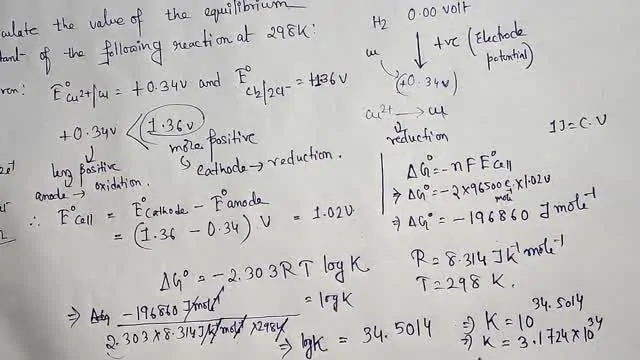 culate the value of the equilibrium
tant of the following reaction at 298K:
E°Cu²⁺/Cu = +0.34V and E°Cl₂/2Cl⁻ = +1.36V
+0.34V < 1.36V
less positive
anode → oxidation.
more positive
cathode → reduction.
∴ E°Cell = E°Cathode - E°anode
= (1.36 - 0.34) V = 1.02V
H₂ 0.00 volt
Cu
+ve (Electrode potential)
(+0.34V)
Cu²⁺ → Cu
reduction
1J = C.V
ΔG° = -nFE°Cell
⇒ ΔG° = -2×96500 C/mole × 1.02V
⇒ ΔG° = -196860 J mole⁻¹
ΔG° = -2.303RT log K
R = 8.314 JK⁻¹mole⁻¹
T = 298 K.
⇒ -196860 J mole⁻¹
2.303×8.314 JK⁻¹ mole⁻¹ × 298K
= log K
⇒ log K = 34.5014
⇒ K = 10^34.5014
⇒ K = 3.1724×10³⁴